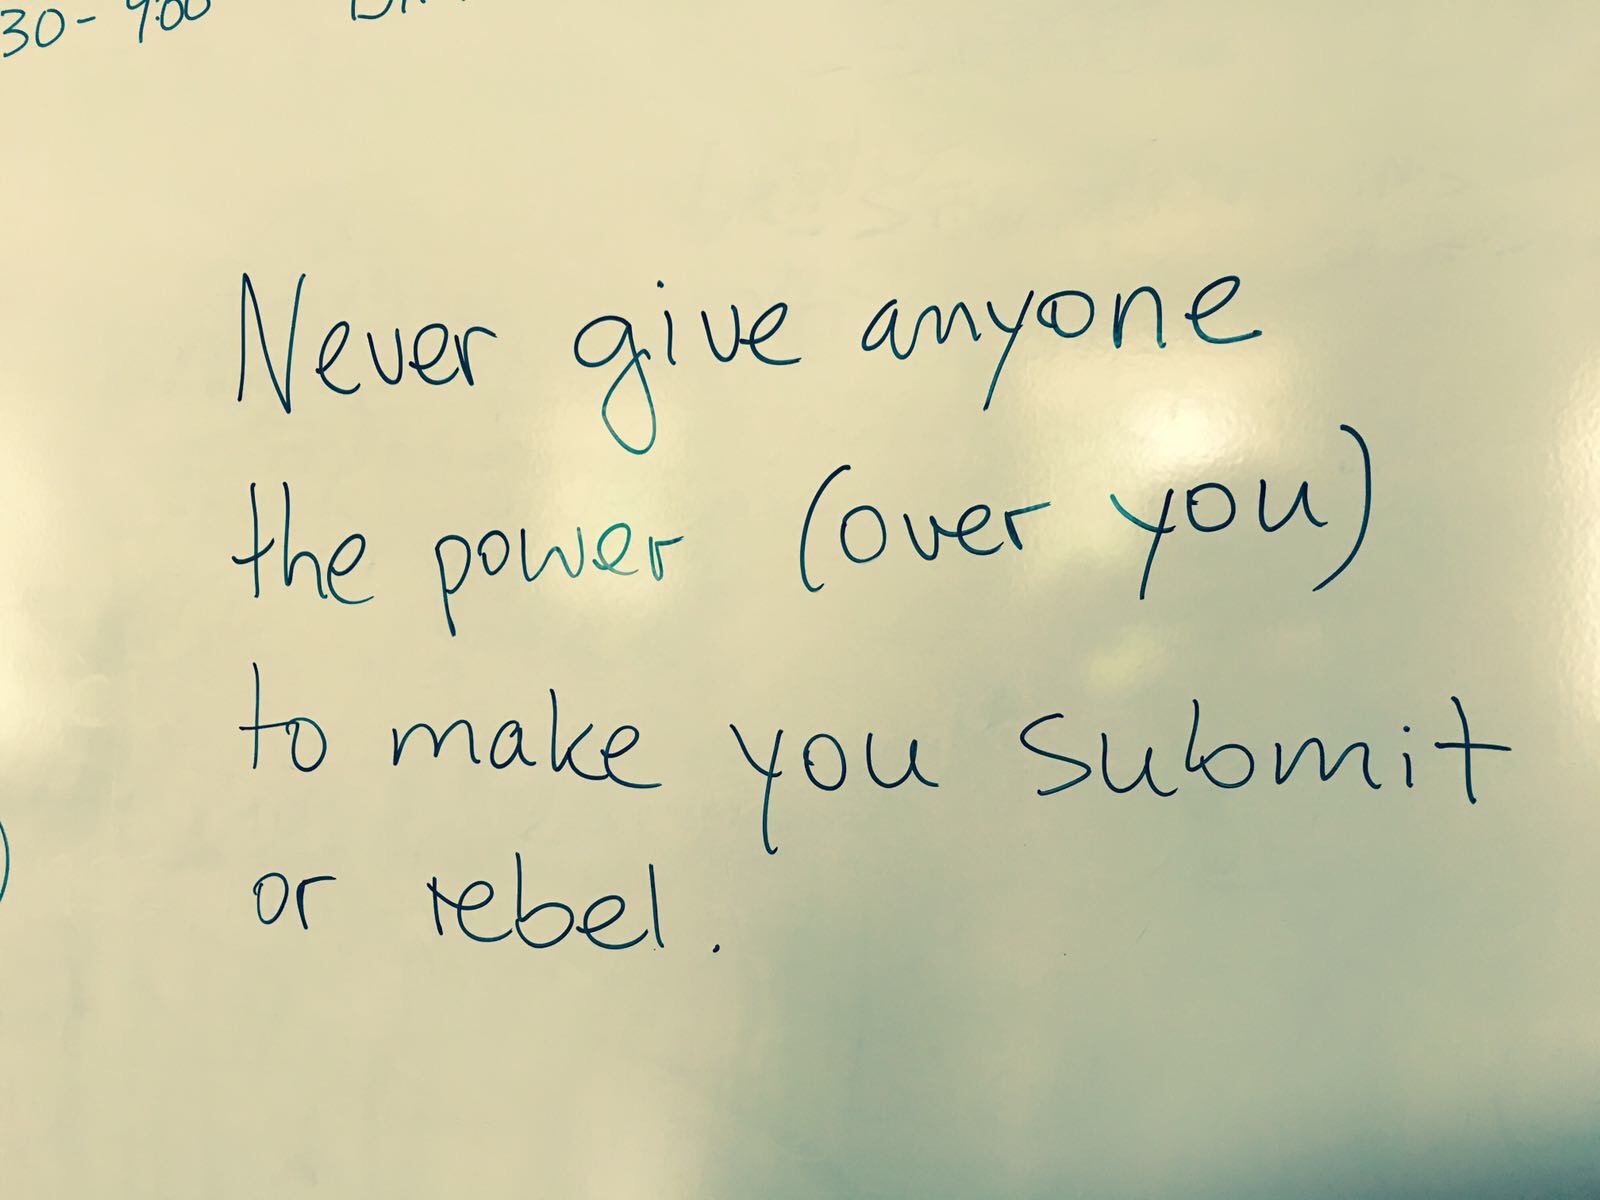 30- 9:00
Never give anyone
the power (over you)
to make you submit
or rebel.